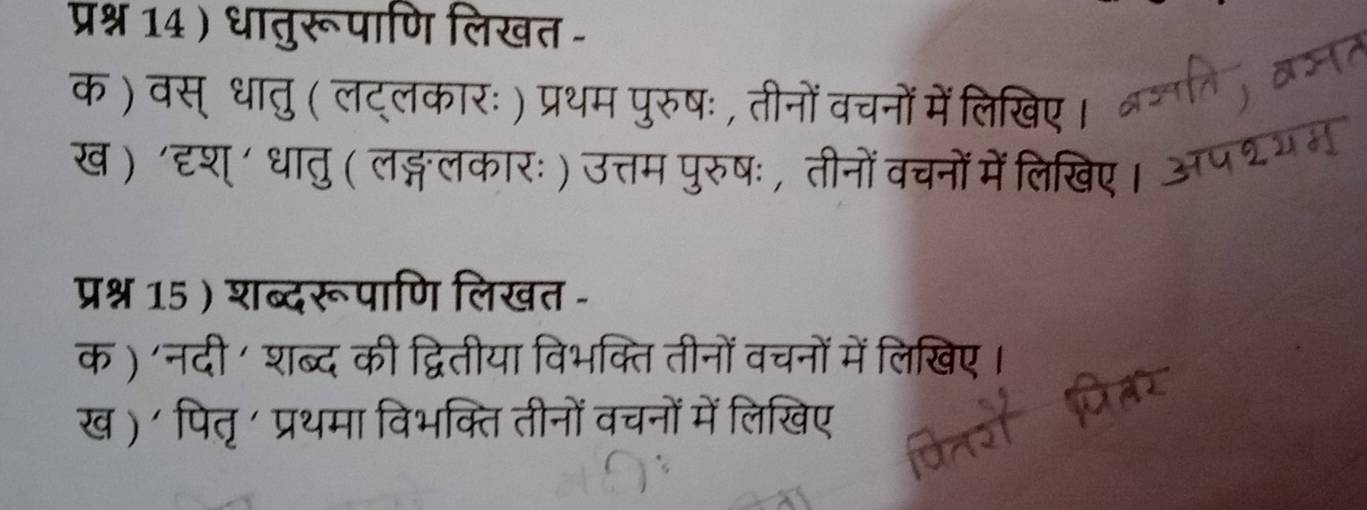 प्रश्न 14 ) धातुरूपाणि लिखत -
क ) वस् धातु ( लट्लकारः ) प्रथम पुरुषः , तीनों वचनों में लिखिए । वसति, वसत
ख ) 'दृश्' धातु ( लङ्गलकारः ) उत्तम पुरुषः , तीनों वचनों में लिखिए । अपश्यम्
प्रश्न 15 ) शब्दरूपाणि लिखत -
क ) 'नदी ' शब्द की द्वितीया विभक्ति तीनों वचनों में लिखिए ।
ख ) ' पितृ ' प्रथमा विभक्ति तीनों वचनों में लिखिए
पितरौ पितर